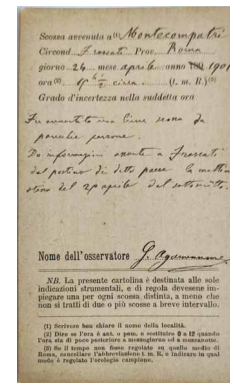 Scossa avvenuta a(1) Montecompatri
Circond Frascati Prov. Roma
giorno 24 mese aprile anno 1901
ora(2) circa (t. m. R.)(3)
Grado d'incertezza nella suddetta ora
Fu avvertita una lieve scossa da
parecchie persone.
Da informazioni avute a Frascati
dal postino di detto paese la mattina
del 29 aprile dal sottoscritto.
Nome dell'osservatore G. Agamennone
NB. La presente cartolina è destinata alle sole
indicazioni strumentali, e di regola devesene im-
piegare una per ogni scossa distinta, a meno che
non si tratti di due o più scosse a breve intervallo.
(1) Scrivere ben chiaro il nome della località.
(2) Dire se l'ora è ant. o pom. e sostituire 0 a 12 quando
l'ora sia di poco posteriore a mezzogiorno od a mezzanotte.
(3) Se il tempo non fosse regolato su quello medio di
Roma, cancellare l'abbreviazione t. m. R. e indicare in qual
modo è regolato l'orologio campione.